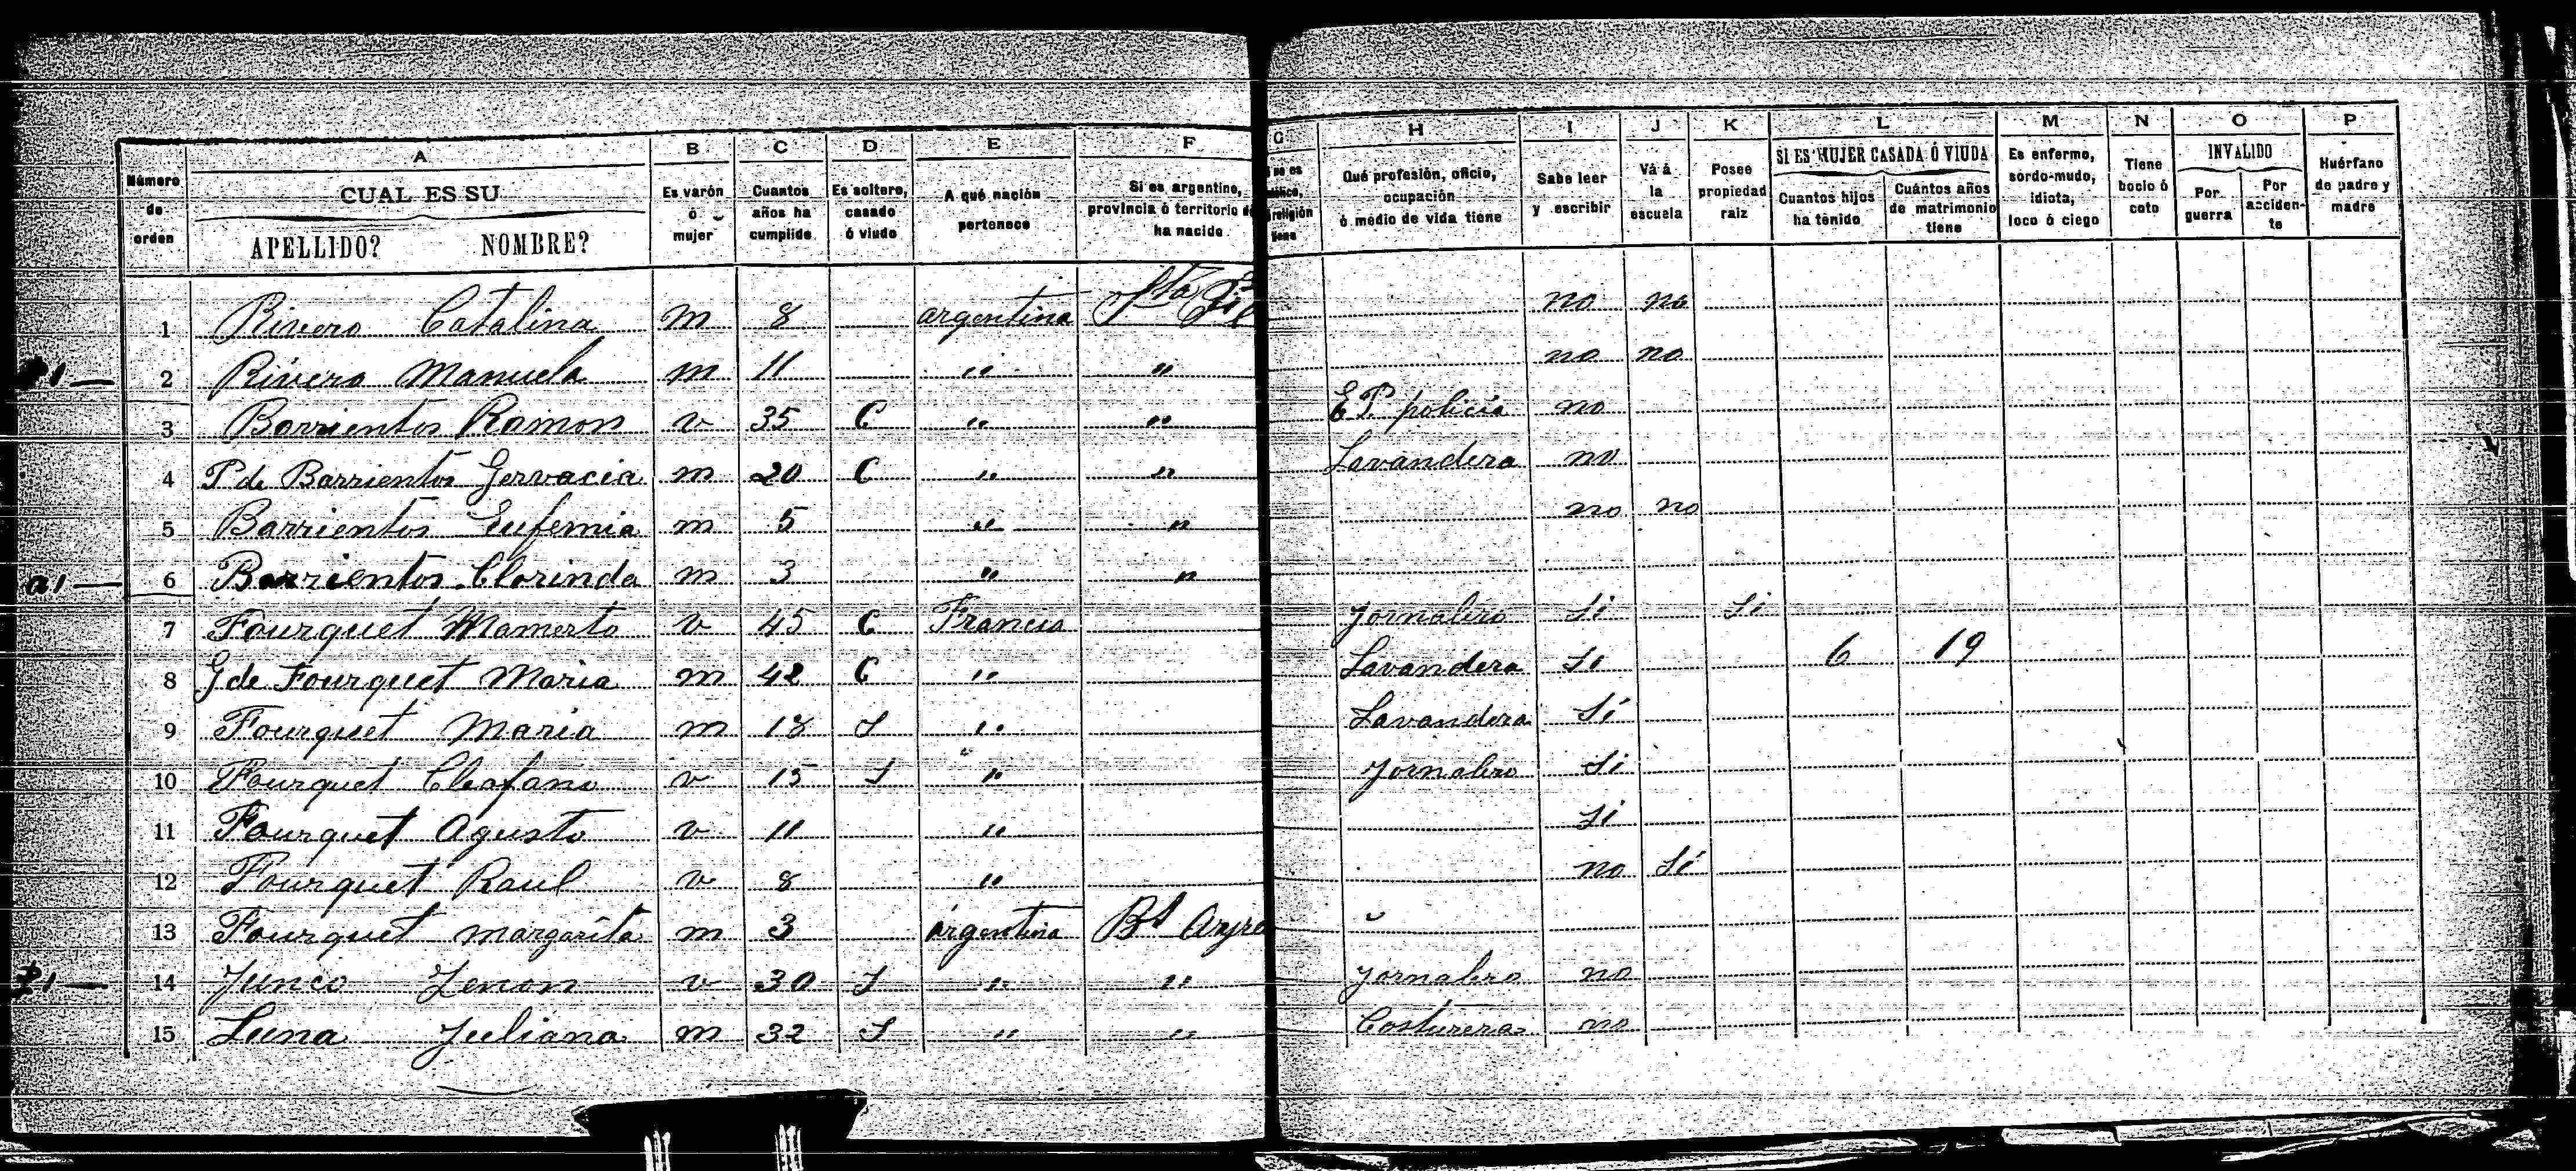 A B C D E F G H I J K L M N O P
Número de orden CUAL ES SU APELLIDO? NOMBRE? Es varón ó mujer Cuantos años ha cumplido Es soltero, casado ó viudo A qué nación pertenece Si es argentino, provincia ó territorio ha nacido religión Qué profesión, oficio, ocupación ó medio de vida tiene Sabe leer y escribir Vá á la escuela Posee propiedad raíz SI ES MUJER CASADA Ó VIUDA Cuantos hijos ha tenido Cuántos años de matrimonio tiene Es enfermo, sordo-mudo, idiota, loco ó ciego Tiene bocio ó coto INVALIDO Por guerra Por acciden-te Huérfano de padre y madre
1 Rivero Catalina m 8 argentina Sta Fe no no
2 Rivero Manuela m 11 " " no no
3 Barrientos Ramon v 35 C " " E P policia no
4 P de Barrientos Gervacia m 20 C " " Lavandera no
5 Barrientos Eufemia m 5 " " no no
6 Barrientos Clorinda m 3 " "
7 Fourquet Mamerto v 45 C Francia Jornalero Si Si
8 G de Fourquet Maria m 42 C " Lavandera Si 6 19
9 Fourquet Maria m 18 S " Lavandera Si
10 Fourquet Cleofano v 15 S " Jornalero Si
11 Fourquet Agusto v 11 " Si
12 Fourquet Raul v 8 " no Si
13 Fourquet Margarita m 3 argentina Bs Ayre
14 Junco Zenon v 30 S " " Jornalero no
15 Luna Juliana m 32 S " " Costurera no